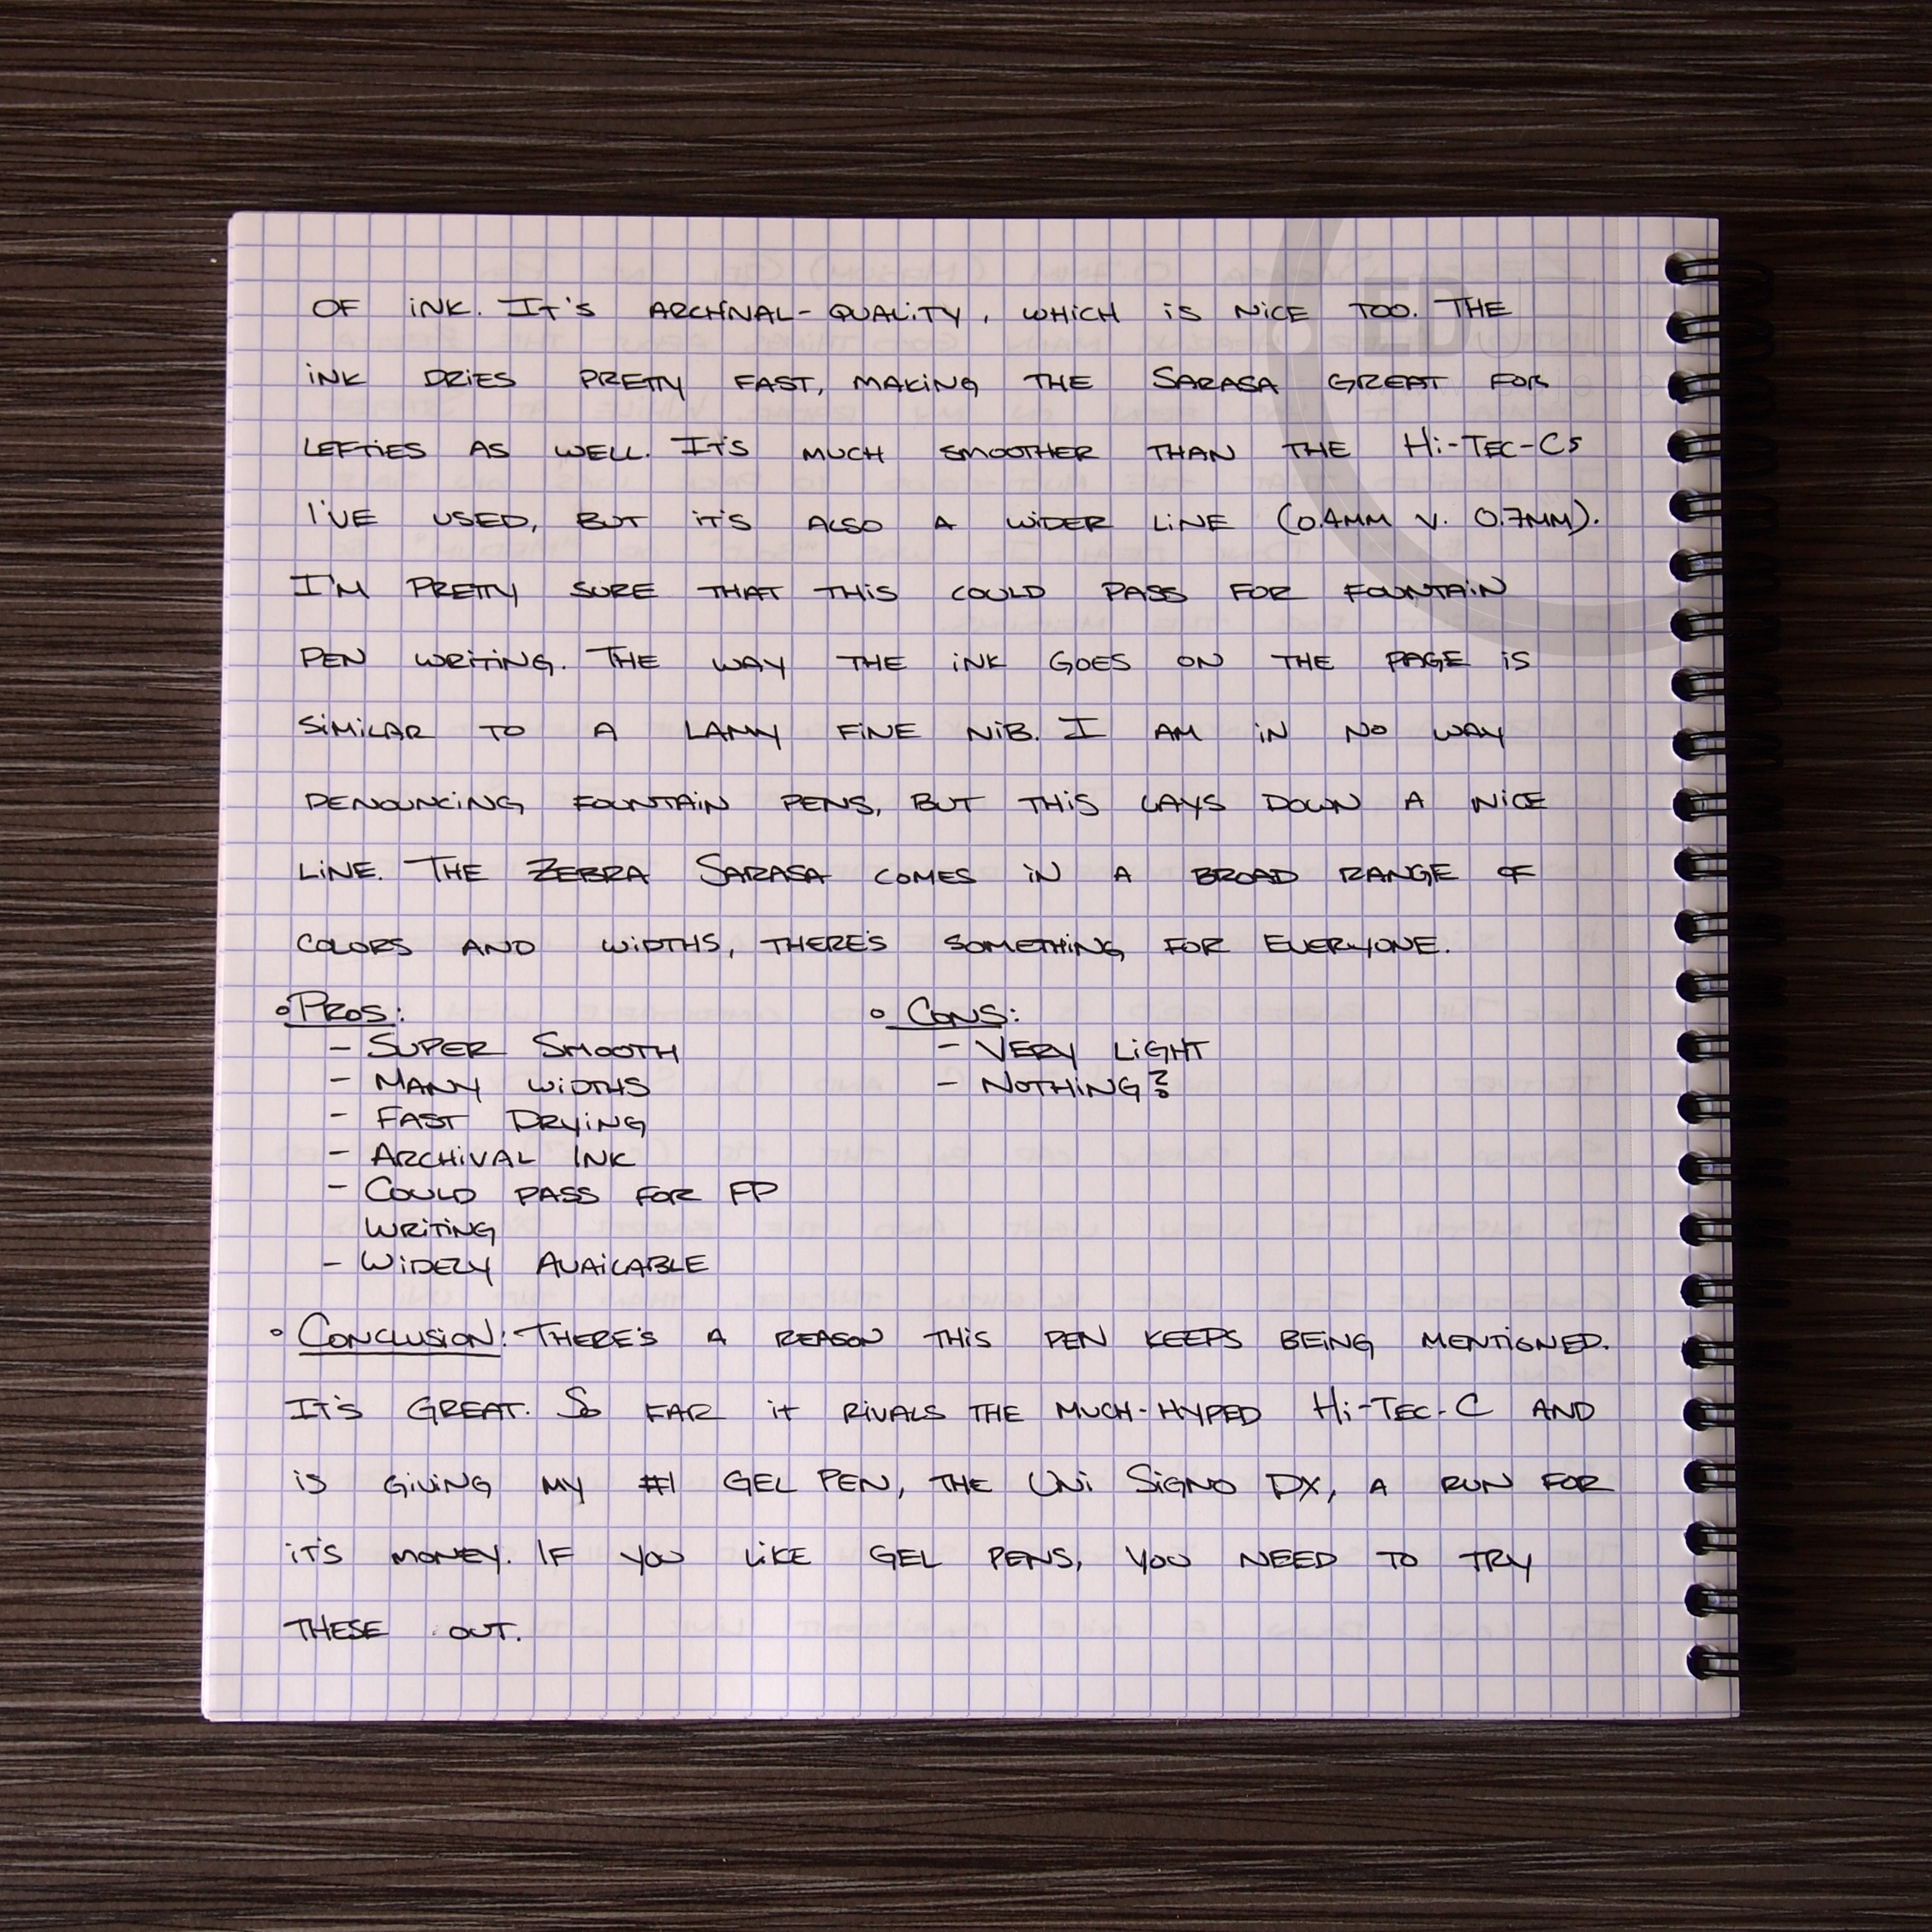 OF INK. IT'S ARCHIVAL-QUALITY, WHICH IS NICE TOO. THE
INK DRIES PRETTY FAST, MAKING THE SARASA GREAT FOR
LEFTIES AS WELL. IT'S MUCH SMOOTHER THAN THE HI-TEC-CS
I'VE USED, BUT IT'S ALSO A WIDER LINE (0.4MM V. 0.7MM).
I'M PRETTY SURE THAT THIS COULD PASS FOR FOUNTAIN
PEN WRITING. THE WAY THE INK GOES ON THE PAGE IS
SIMILAR TO A LAMY FINE NIB. I AM IN NO WAY
DENOUNCING FOUNTAIN PENS, BUT THIS LAYS DOWN A NICE
LINE. THE ZEBRA SARASA COMES IN A BROAD RANGE OF
COLORS AND WIDTHS, THERE'S SOMETHING FOR EVERYONE.
° PROS:
- SUPER SMOOTH
- MANY WIDTHS
- FAST DRYING
- ARCHIVAL INK
- COULD PASS FOR FP
WRITING
- WIDELY AVAILABLE
° CONS:
- VERY LIGHT
- NOTHING?
° CONCLUSION: THERE'S A REASON THIS PEN KEEPS BEING MENTIONED.
IT'S GREAT. SO FAR IT RIVALS THE MUCH-HYPED HI-TEC-C AND
IS GIVING MY #1 GEL PEN, THE UNI SIGNO DX, A RUN FOR
IT'S MONEY. IF YOU LIKE GEL PENS, YOU NEED TO TRY
THESE OUT.